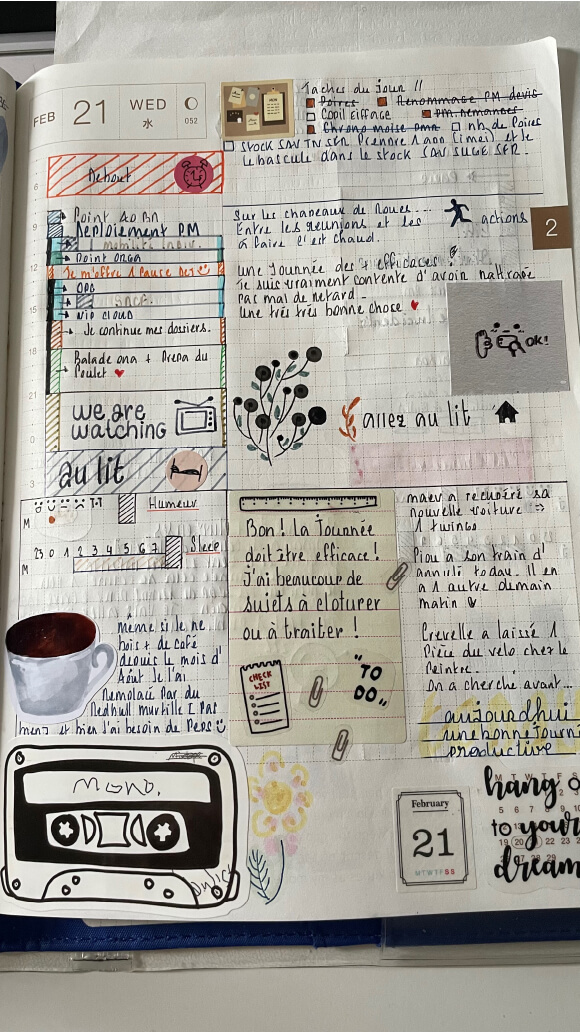 FEB 21 WED
水
052
Taches du Jour !!
Poires
Renommage PM devis
Copil Eiffage
PM. nemanses
Chrono moise
nb. de Poires
Stock SAV TN SFR. Prendre 1 ano (imei) et le
bascule dans le stock SAV SUGE SFR.
6
Debout
9
Point
Deploiement PM
1 mobilité indiv.
Point ORGA
12
Je m'offre 1 Pause DEJ
OPC
15
VIP CLOUD
Je continue mes dossiers.
18
Balade ona + Prepa du
Poulet
21
we are
watching
0
3
au lit
Sur les chapeaux de Roues....
Entre les reunions et les
à faire c'est chaud.
actions
2
une Journée des + efficaces !
Je suis vraiment contente d'avoir rattrapé
Pas mal de retard.
une très très bonne chose
OK!
allez au lit
Humeur
M
23 0 1 2 3 4 5 6 7
Sleep
M
Même si je ne
bois + de café
depuis le mois d'
Août Je l'ai
Remplacé Par du
Redbull myrtille
et bien J'ai besoin de Peps
Bon! la Journée
doit être efficace!
J'ai beaucoup de
sujets à cloturer
ou à traiter!
CHECK
LIST
"TO
DO"
maev a recupéré sa
nouvelle voiture
1 twingo
Piou a son train d'
annulé today. Il en
a 1 autre demain
matin
Crevelle a laissé 1
Pièce du velo chez le
Peintre.
On a cherché avant...
aujourd'hui
une bonne Journé
productive
MONO.
February
21
M T W T F S S
hang o
to your
dream